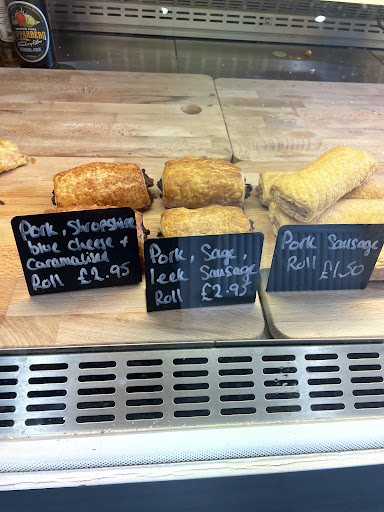 KOPPARBERG
Pork, Shropshire
blue cheese +
caramalised
Roll £2.95
Pork, Sage,
leek Sausage
Roll £2.95
Pork Sausage
Roll £1.50